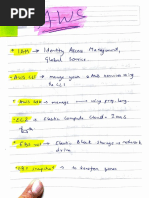 AWS
* IAM → Identity Access Management,
Global Service.
* AWS CLI → manage your AWS services using
the CLI
* AWS SDK → manage using prog. lang.
* EC2 → Elastic Compute Cloud → IaaS
* EBS vol → Elastic Block Storage → network
drive.
* EBS snapshot → to transfer